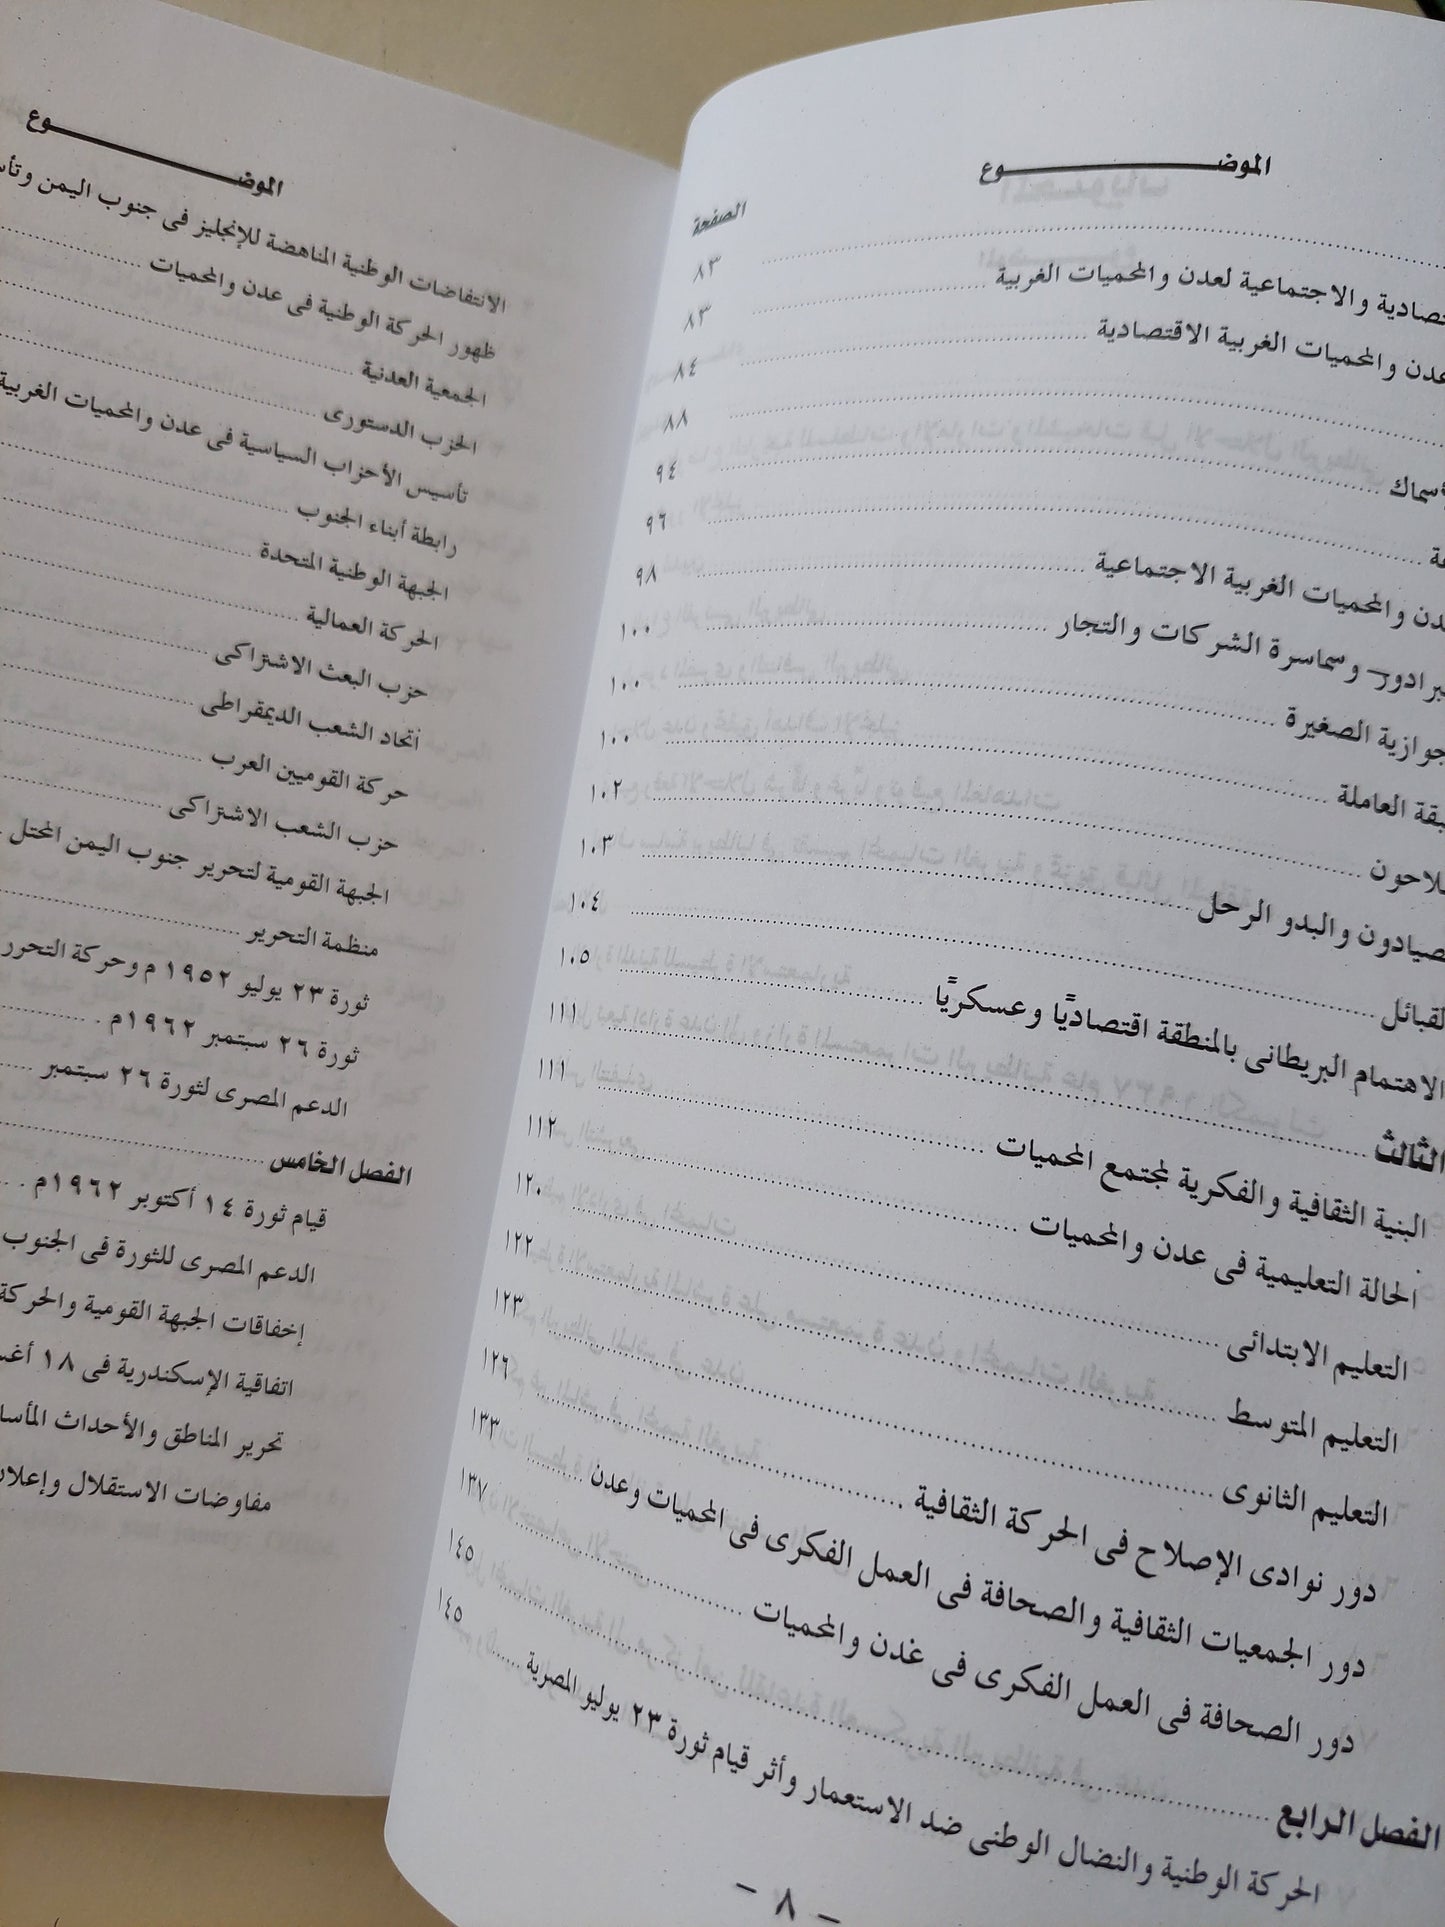 الموضـــــــــوع
الصفحة
٨٣
والاجتماعية لعدن والمحميات الغربية ٨٣
عدن والمحميات الغربية الاقتصادية ٨٤
٨٨
٩٤
٩٦
والمحميات الغربية الاجتماعية ٩٨
وسماسرة الشركات والتجار ١٠٠
الصغيرة ١٠٠
العاملة ١٠٠
١٠٢
والبدو الرحل ١٠٣
١٠٤
الاهتمام البريطانى بالمنطقة اقتصاديًا وعسكريًا ١٠٥
الثالث ١١١
البنية الثقافية والفكرية لمجتمع المحميات ١١١
الحالة التعليمية فى عدن والمحميات ١١٢
التعليم الابتدائى ١٢٠
التعليم المتوسط ١٢٢
التعليم الثانوى ١٢٣
دور نوادى الإصلاح فى الحركة الثقافية ١٢٦
دور الجمعيات الثقافية والصحافة فى العمل الفكرى فى المحميات وعدن ١٣٣
دور الصحافة فى العمل الفكرى فى غدن والمحميات ١٣٧
الفصل الرابع ١٤٥
الحركة الوطنية والنضال الوطنى ضد الاستعمار وأثر قيام ثورة ٢٣ يوليو المصرية ١٤٥
– ٨ –
الموضـــــــــوع
الانتفاضات الوطنية المناهضة للإنجليز فى جنوب اليمن
ظهور الحركة الوطنية فى عدن والمحميات
الجمعية العدنية
الحزب الدستورى
تأسيس الأحزاب السياسية فى عدن والمحميات الغربية
رابطة أبناء الجنوب
الجبهة الوطنية المتحدة
الحركة العمالية
حزب البعث الاشتراكى
اتحاد الشعب الديمقراطى
حركة القوميين العرب
حزب الشعب الاشتراكى
الجبهة القومية لتحرير جنوب اليمن المحتل
منظمة التحرير
ثورة ٢٣ يوليو ١٩٥٢م وحركة التحرر
ثورة ٢٦ سبتمبر ١٩٦٢م
الدعم المصرى لثورة ٢٦ سبتمبر
الفصل الخامس
قيام ثورة ١٤ أكتوبر ١٩٦٢م
الدعم المصرى للثورة فى الجنوب
إخفاقات الجبهة القومية والحركة
اتفاقية الإسكندرية فى ١٨
تحرير المناطق والأحداث
مفاوضات الاستقلال